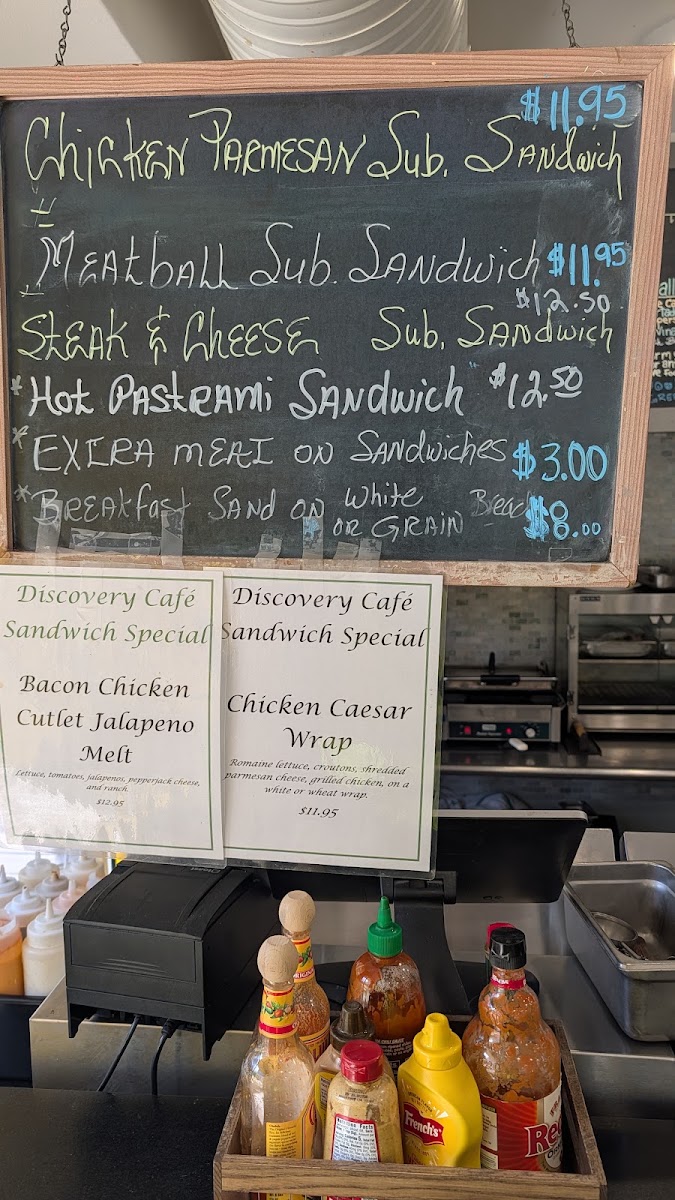 $11.95
Chicken Parmesan Sub. Sandwich
Meatball Sub. Sandwich $11.95
$12.50
Steak & Cheese Sub. Sandwich
* Hot Pastrami Sandwich $12.50
* Extra meat on Sandwiches $3.00
* Breakfast Sand on white Bread
or Grain $8.00
Discovery Café
Sandwich Special
Bacon Chicken
Cutlet Jalapeno
Melt
Lettuce, tomatoes, jalapenos, pepperjack cheese,
and ranch.
$12.95
Discovery Café
Sandwich Special
Chicken Caesar
Wrap
Romaine lettuce, croutons, shredded
parmesan cheese, grilled chicken, on a
white or wheat wrap.
$11.95
French's
Re